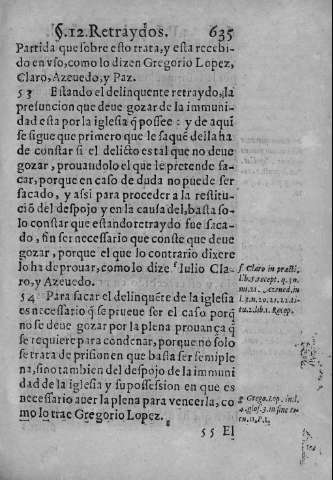 §.12. Retraydos. 635
Partida que sobre esto trata, y esta recebi-
do en vso, como lo dizen Gregorio Lopez,
Claro, Azeuedo, y Paz.
53 Estando el delinquente retraydo, la
presuncion que deue gozar de la immuni-
dad esta por la iglesia q̃ possee: y de aqui
se sigue que primero que le saquē della ha
de constar si el delicto es tal que no deue
gozar, prouandolo el que le pretende sa-
car, porque en caso de duda no puede ser
sacado, y assi para proceder a la restitu-
ciō del despojo y en la causa del, basta so-
lo constar que estando retraydo fue saca-
do, sin ser necessario que conste que deue
gozar, porque el que lo contrario dixere
lo ha de prouar, como lo dize ᶠ Iulio Cla-
ro, y Azeuedo.
54 Para sacar el delinquēte de la iglesia
es necessario q̃ se prueue ser el caso porq̃
no se deue gozar por la plena prouança q̃
se requiere para condenar, porque no solo
se trata de prision en que basta ser semiple
na, sino tambien del despojo de la immuni
dad de la iglesia y su possession en que es
necessario auer la plena para vencerla, co
mo lo trae Gregorio Lopez.
55 El
f Claro in practi.
lib. 5. recept. q. 30.
nu. 21. Azeued. in
l. 3. n. 20. 21. 22. ti-
tu. 2. lib. 1. Recop.
g Grego. Lop. in l.
4. glos. 3. in fine to